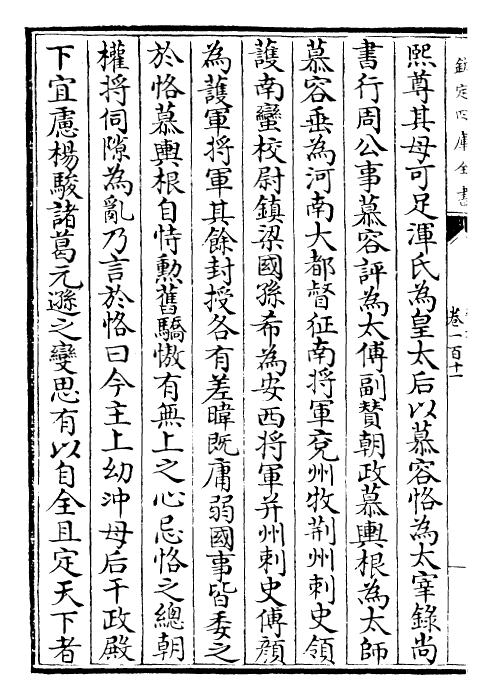 欽定四庫全書
卷一百十一
熙尊其母可足渾氏為皇太后以慕容恪為太宰錄尚
書行周公事慕容評為太傅副贊朝政慕輿根為太師
慕容垂為河南大都督征南將軍兗州牧荆州刺史領
護南蠻校尉鎮梁國孫希為安西將軍并州刺史傅顔
為護軍將軍其餘封授各有差暐既庸弱國事皆委之
於恪慕輿根自恃勲舊驕慠有無上之心忌恪之總朝
權將伺隙為亂乃言於恪曰今主上幼沖母后干政殿
下宜慮楊駿諸葛元遜之變思有以自全且定天下者